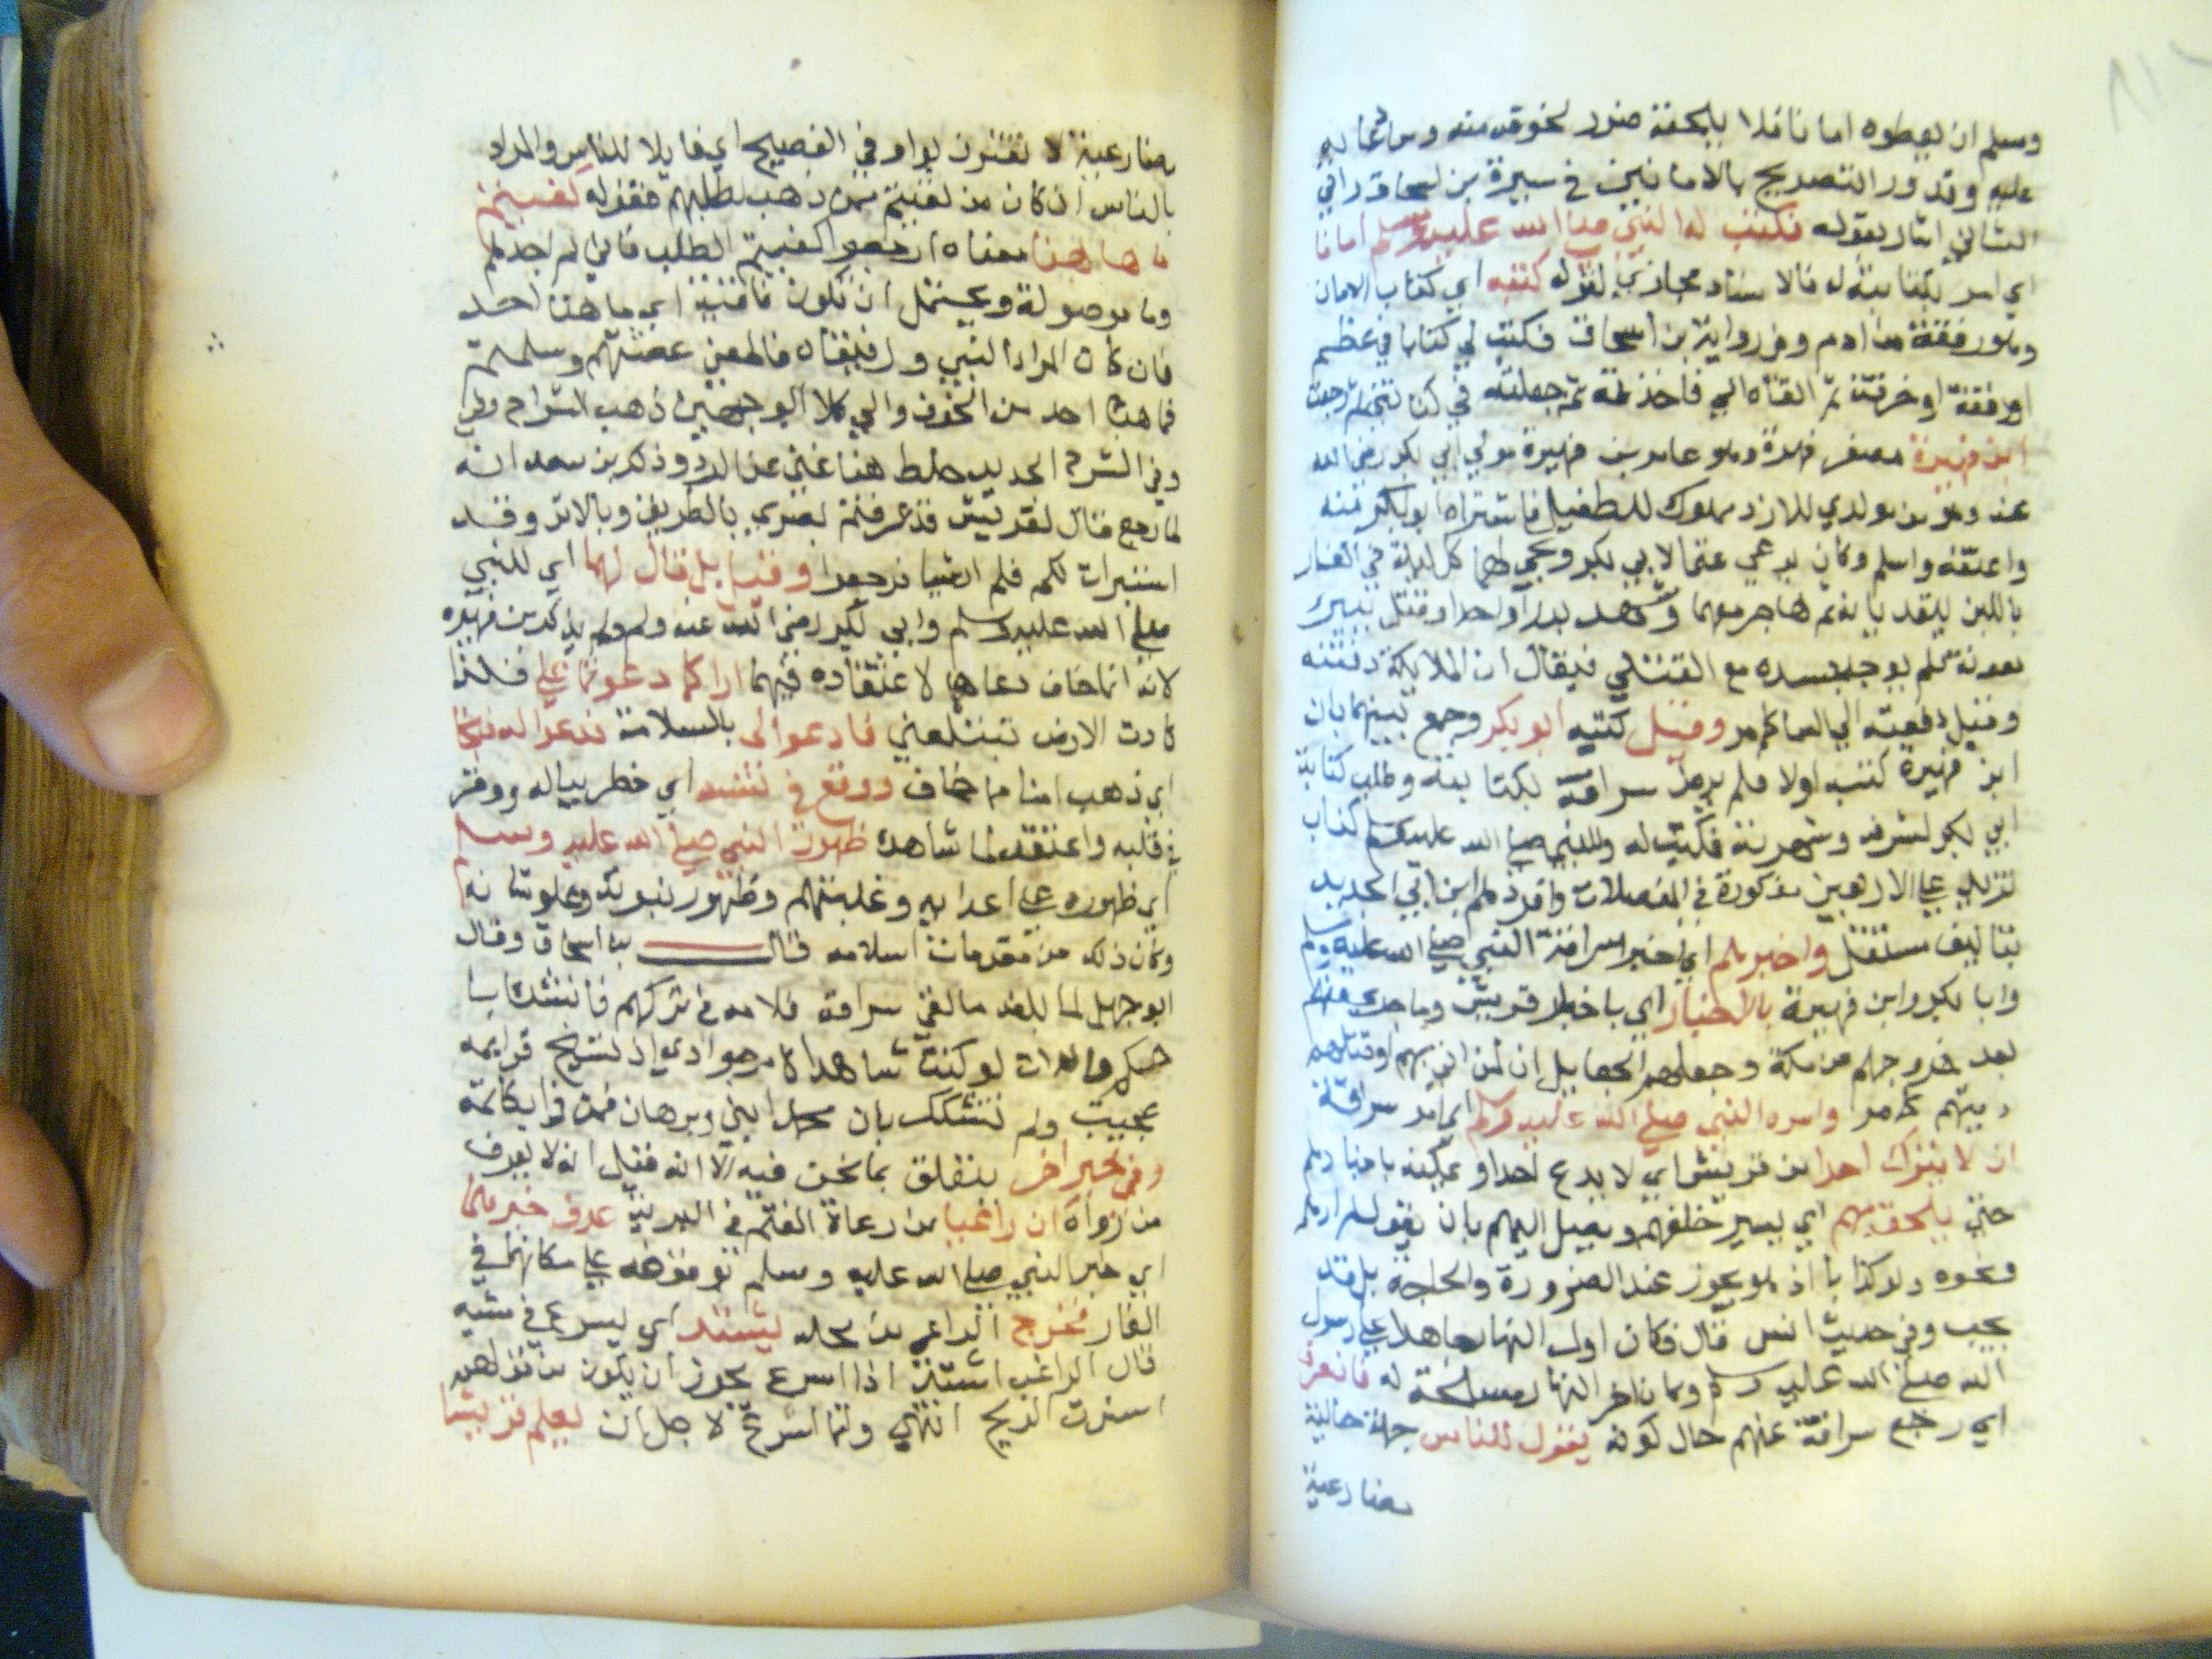 وسلم ان يعطوه امانا فلا يلحقه ضرر لخوفه منه وسائما به
عليه وقد ورد التصريح بالامانين في سيرة بن اسحاق والى
الثاني اشار بقوله فكتب له النبي صلى الله عليه وسلم امانا
اي امر بكتابته له فالاسناد مجازي لقوله كتبه اي كتاب الامان
وهو رقعة من ادم وفي رواية بن اسحاق فكتب لي كتابا في عظم
او رقعة او خرقة ثم القاه الي فاخذته ثم جعلته في كنانتي ثم رجعت
ابن فهيرة مصغر فهرة وهو عامر بن فهيرة مولى ابي بكر رضي الله
عنه وهو من مولدي للازد مملوك للطفيل فاشتراه ابو بكر منه
واعتقه واسلم وكان يرعى غنما لابي بكر ويجي لهما كل ليلة في الغار
باللبن ليتغديا به ثم هاجر معهما وشهد بدرا واحدا وقتل ببير
معونة فلم يوجد جسده مع القتلى فيقال ان الملايكة دفنته
وقيل رفعته الى السما كما مر وقيل كتبه ابو بكر وجمع بينهما بان
ابن فهيرة كتبه اولا فلم يرض سراقة بكتابته وطلب كتابة
ابي بكر لشرفه وشهرته فكتب له وللنبي صلى الله عليه وسلم كتاب
تزيد على الاربعين مذكورة في المفصلات وافردهم ابن ابي الحديد
بتاليف مستقل واخبرهم اي اخبر سراقة النبي صلى الله عليه وسلم
وابا بكر وابن فهيرة بالاخبار اي باخبار قريش وما حدث منهم
بعد خروجهم من مكة وجعلهم الجعايل ان لمن اتى بهم او قتلهم
ديتهم كما مر وامره النبي صلى الله عليه وسلم اي امر سراقة
ان لا يترك احدا من قريش اي لا يدع احدا ويمكنه باخبارهم
حتى يلحق بهم اي يسير خلفهم ويصل اليهم بان يقول لم ارهم
ونحوه ولو كذبا اذ هو يجوز عند الضرورة والحاجة بل قد
يجب وفي حديث انس قال فكان اول النهار جاهدا على رسول
الله صلى الله عليه وسلم وكان اخر النهار مسلحة له فانصرف
اي رجع سراقة عنهم حال كونه يقول للناس جملة حالية
مضارعية
مضارعية لا تقترن بواو في الفصيح اي قايلا للناس والمراد
بالناس ان كان من لقيتم ممن ذهب لطلبهم فقوله كفيتم
ما هاهنا معناه ارجعوا كفيتم الطلب فاني لم اجدهم
وما موصولة ويحتمل ان تكون نافية اي ما هنا احد
فان كان المراد النبي ورفيقاه فالمعنى عصمتهم وسلمتهم
فما هنا احد من الخوف والى كلا الوجهين ذهب الشراح
وفي الشرح الجديد خلط هنا غني عن الرد وذكر بن سعد انه
لما رجع قال لقريش قد عرفتم بصري بالطريق وبالاثر وقد
استبرات لكم فلم ار شيا فرجعوا وقيل بل قال لهما اي للنبي
صلى الله عليه وسلم وابي بكر رضي الله عنه ولم يذكر بن فهيره
لانه انما خاف دعاهما لاعتقاده فيهما اراكما دعوتما علي فلذا
كادت الارض تبتلعني فادعوا لي بالسلامة فدعوا له فنجا
اي ذهب امنا مما خاف ووقع في نفسه اي خطر بباله ووقر
في قلبه واعتقد لما شاهده ظهور النبي صلى الله عليه وسلم
اي ظهوره على اعدايه وغلبتهم وظهور نبوته وعلو شانه
وكان ذلك من مقدمات اسلامه قال بن اسحاق وقال
ابو جهل لما بلغه ما لقي سراقة فلامه في تركهم فانشد ابا
حكم واللات لو كنت شاهدا لامر جوادي اذ تسيخ قوايمه
عجبت ولم تشكك بان محمدا نبي وبرهان فمن ذا يكاتمه
وفي خبر اخر يتعلق بما نحن فيه الا انه قيل انه لا يعرف
من رواه ان راعيا من رعاة الغنم في البرية عرف خبرهما
اي خبر النبي صلى الله عليه وسلم فوقوفه على مكانهما في
الغار فخرج الراعي من محله يشتد اي يسرع في مشيه
قال الراغب اشتد اذا اسرع يجوز ان يكون من قولهم
اشتدت الريح انتهى وانما اسرع لاجل ان يعلم قريشا